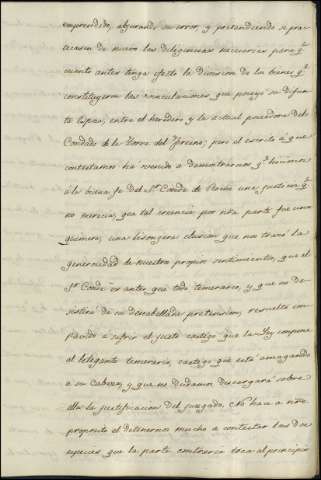 emprendido, abjurando su error, y pretendiendo se prac-
ticasen de nuevo las diligencias necesarias para q.e
cuanto antes tenga efecto la Division de los bienes q.e
constituyeron las vinculaciones que poseyó su difun-
to esposo, entre el heredero y la actual poseedora del
Condado de la Torre del Fresno; pero el escrito á que
contestamos ha venido a demostrarnos q.e hicimos
á la buena fe del S.or Conde de una justicia q.e
no merecia, que tal creencia por nra parte fue una
quimera, una lisongera ilusion que nos trazó la
generosidad de nuestros propios sentimientos, que el
S.or Conde es antes que todo temerario, y que no de-
sistirá de su descabellada pretension, resuelto em-
pero á sufrir el justo castigo que la Ley impone
al litigante temerario, castigo que está amagando
a su cabeza, y que no dudamos descargará sobre
ella la justificacion del juzgado. No hace a nro
proposito el detenernos mucho a contestar las dos
especies que la parte contraria toca al principio